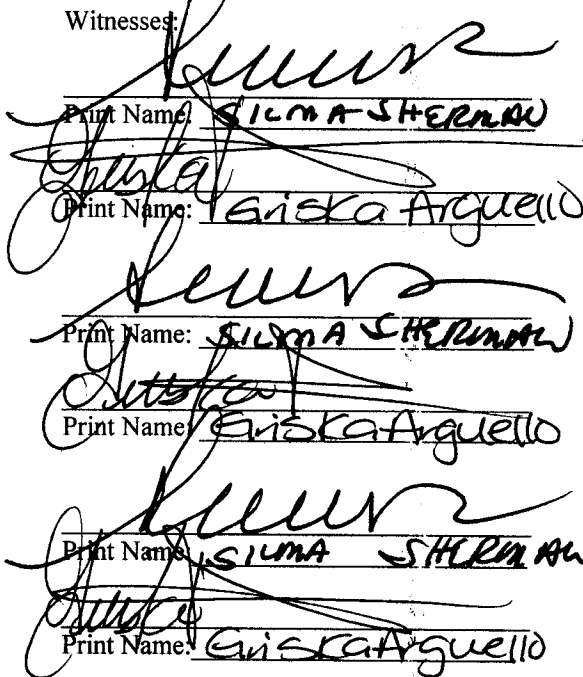 Witnesses:
Print Name: SILMA SHERMAN
Print Name: Griska Arguello
Print Name: SILMA SHERMAN
Print Name: Griska Arguello
Print Name: SILMA SHERMAN
Print Name: Griska Arguello